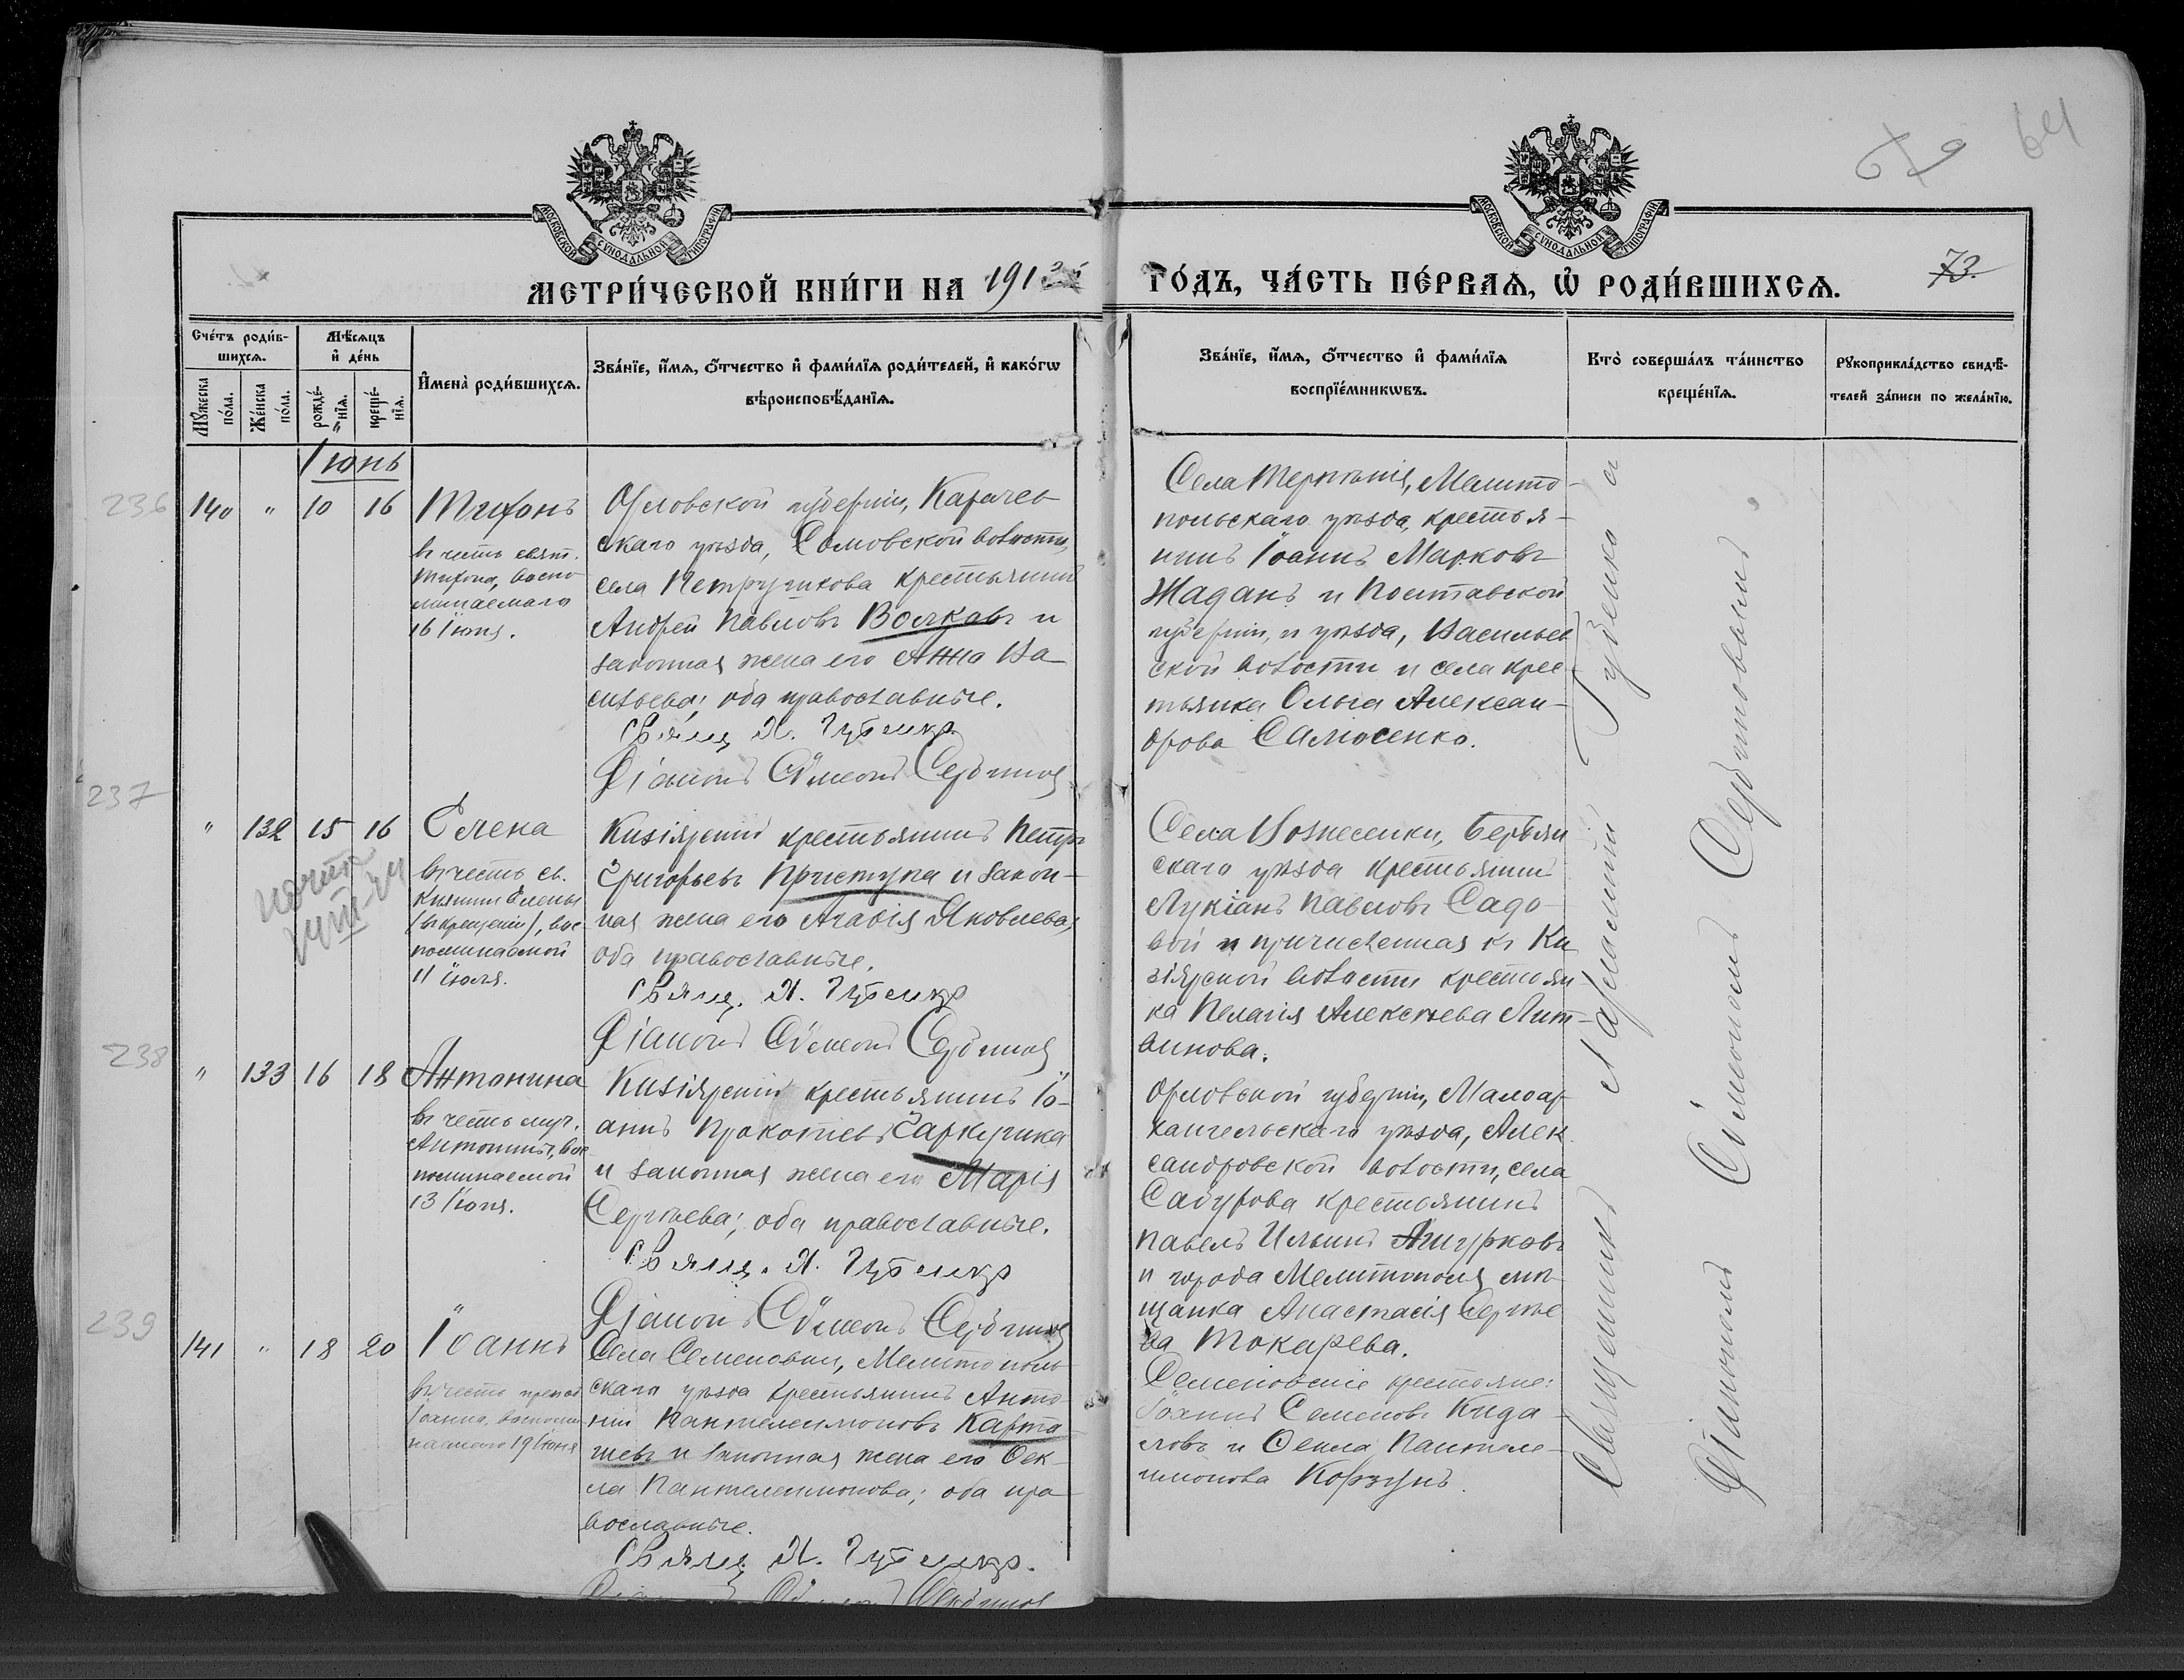 64
МОСКОВСКОЙ СѴНОДАЛЬНОЙ ТИПОГРАФІИ
МОСКОВСКОЙ СѴНОДАЛЬНОЙ ТИПОГРАФІИ
МЕТРИ́ЧЕСКОЙ КНИ́ГИ НА 1913
ГО́ДЪ, ЧА́СТЬ ПЕ́РВАѦ, Ѡ҆ РОДИ́ВШИХСѦ.
73.
Сче́тъ роди́в-
шихсѧ.
Мꙋ́жеска по́ла.
Же́нска по́ла.
Мѣ́сѧцъ
и҆ де́нь
рожде́-нїѧ.
креще́-нїѧ.
И҆мена̀ роди́вшихсѧ.
Зва́нїе, и҆́мѧ, ѻ҆́тчество и҆ фами́лїѧ роди́телей, и҆ како́гѡ
вѣроисповѣ́данїѧ.
Зва́нїе, и҆́мѧ, ѻ҆́тчество и҆ фами́лїѧ
воспрїе́мникѡвъ.
Кто̀ соверша́лъ та́инство
креще́нїѧ.
Рꙋкоприкла́дство свидѣ́-
телей за́писи по жела́нїю.
Іюнь
236
140 " 10 16
Тихонъ
въ честь свят.
Тихона, воспо
минаемаго
16 Іюня.
Орловской губерніи, Карачев
скаго уѣзда, Сомовской волости,
села Петрушкова крестьянинъ
Андрей Павловъ Волковъ и
законная жена его Анна Ва-
сильева; оба православные.
Свящ. Н. Губенко
Діаконъ Сѵмеонъ Сербинов
Села Терпѣнія, Мелито-
польскаго уѣзда, крестья-
нинъ Іоаннъ Марковъ
Жаданъ и Полтавской
губерніи, и уѣзда, Васильев
ской волости и села крес-
тьянка Ольга Алексан-
дрова Самосенко.
237
" 132 15 16
Елена
въ честь св.
Княгини Елены
(въ крещеніи), вос
поминаемой
11 іюля.
Кизіярскій крестьянинъ Петръ
Григорьевъ Приступа и закон-
ная жена его Агафія Яковлева,
оба православные.
Свящ. Н. Губенко
Діаконъ Сѵмеонъ Сербинов
Села Вознесенки, Бердян
скаго уѣзда крестьянинъ
Лукіанъ Павловъ Садо-
вой и причисленная къ Ки
зіярской волости крестьян
ка Пелагія Алексѣева Лит-
винова.
238
" 133 16 18
Антонина
въ честь муч.
Антонины, вос
поминаемой
13 Іюня.
Кизіярскій крестьянинъ Іо-
аннъ Прокопіевъ
и законная жена его Марія
Сергѣева; оба православные.
Свящ. Н. Губенко
Діаконъ Сѵмеонъ Сербинов
Орловской губерніи, Малоар-
хангельскаго уѣзда, Алек
сандровской волости, села
Сабурова крестьянинъ
Павелъ Ильинъ
и города Мелитополя мѣ-
щанка Анастасія Сергѣе
ва Токарева.
239
141 " 18 20
Іоаннъ
въ честь препод
Іоанна, воспоми
наемаго 19 Іюня
Села Семеновки, Мелитополь
скаго уѣзда крестьянинъ Анто-
ній Пантелеимоновъ Карта-
шевъ и законная жена его Фек-
ла Пантелеимонова; оба пра
вославные.
Свящ. Н. Губенко.
Діаконъ Сѵмеонъ Сербинов
Семеновскіе крестьяне:
Іоаннъ Семеновъ Кида-
ловъ и Фекла Пантеле-
имонова Корзунъ.
Священникъ Харлампій Губенко и
Діаконъ Сѵмеонъ Сербиновъ